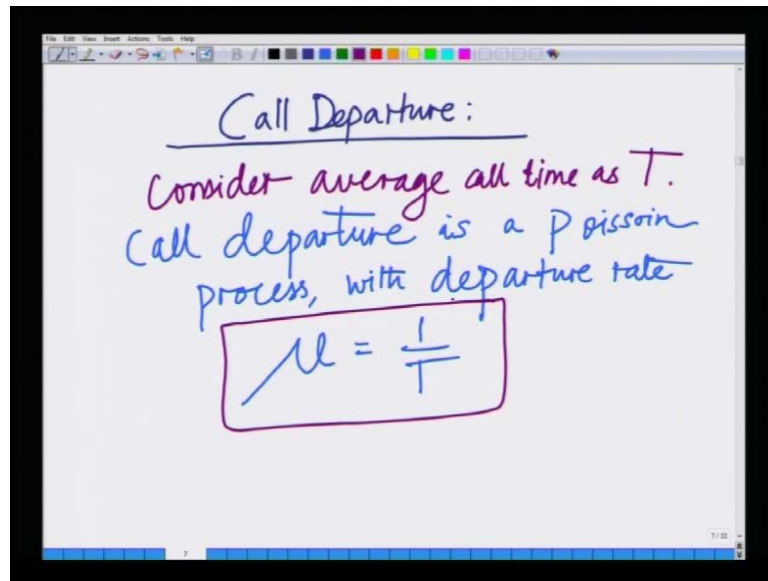 File Edit View Insert Actions Tools Help
Call Departure:
Consider average call time as T.
Call departure is a Poissoin
process, with departure rate
μ = 1/T
7/33
7